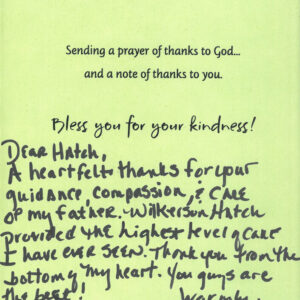 Sending a prayer of thanks to God...
and a note of thanks to you.
Bless you for your kindness!
DEAR HATCH,
A heartfelt thanks for your
guidance, compassion, & CARE
of my father. Wilkerson Hatch
provided the highest level of care
I have ever seen. Thank you from the
bottom of my heart. You guys are
the best!
Warmly,